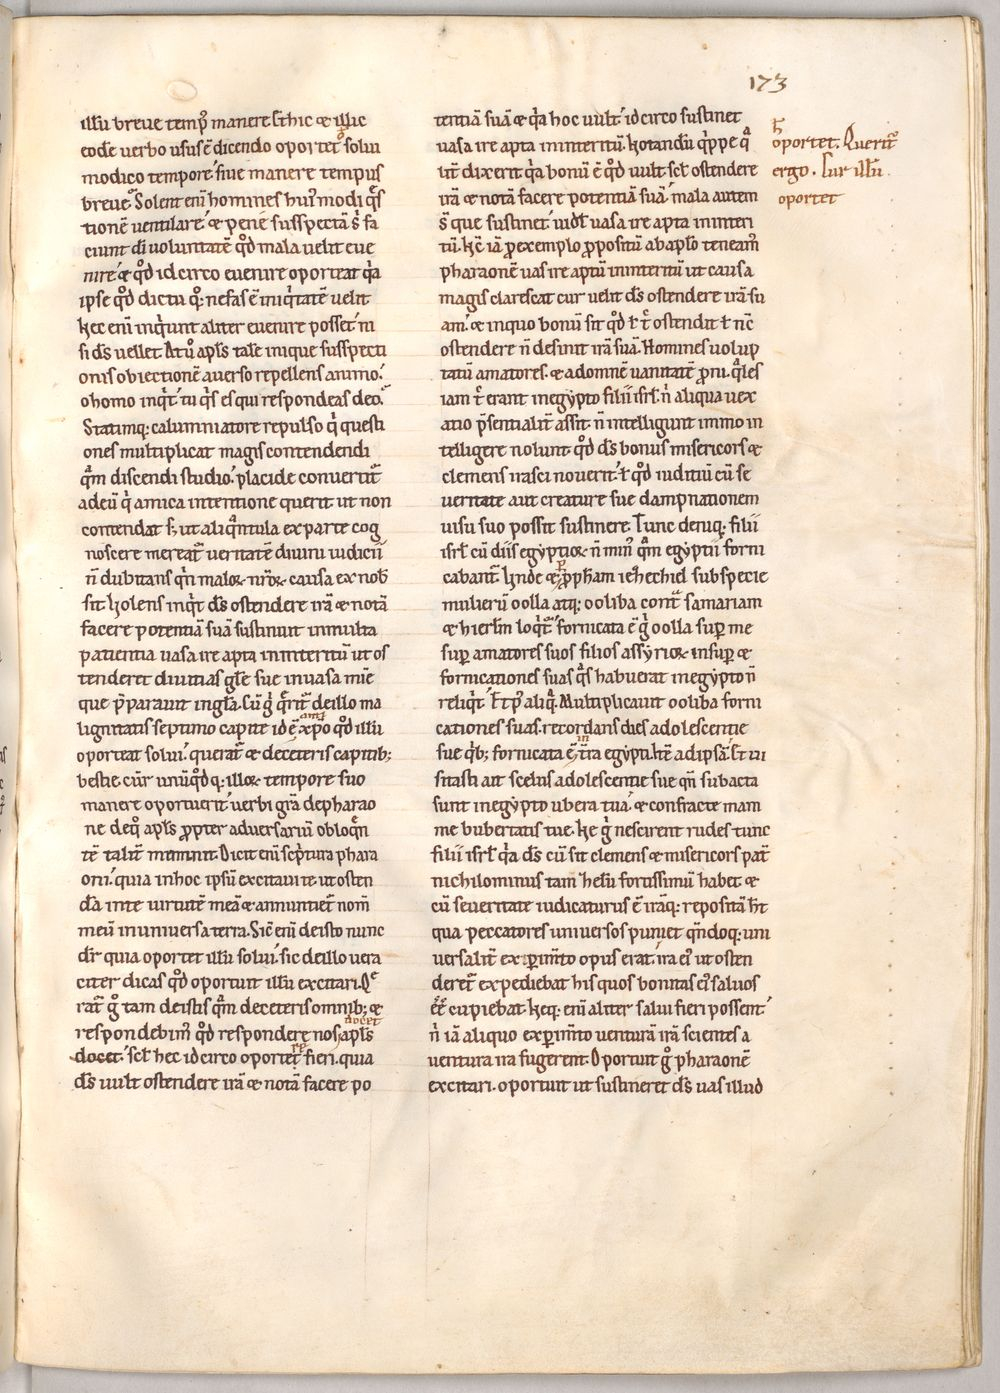 173
illũ breue temp᷒ manere. S; hic ⁊ illic
eode verbo usus ẽ dicendo oportet᷒ solui
modico tempore. siue manere tempus
breue. Solent enĩ homines hui᷒ modi q̃s
tionẽ ventilare. ⁊ pene susspectã s̃ fa
ciunt dĩ voluntatẽ qđ mala velit eue
nire. ⁊ qđ idcirco euenire oporteat q̃a
ipse qđ dictu q̃: nefas ẽ iniq̃tatẽ velit
hec enĩ inq̃unt aliter euenire posset. ni
si d̃s vellet. At᷒ apl̃s tale inique susspecti
onis obiectionẽ auerso repellens animo.
o homo inq̃t. tu q̃s es qui respondeas deo.
Statimq: calumniatore repulso q̃ questi
ones multiplicat magis contendendi
q̃m discendi studio. placide conuertit᷒
ad eũ q̃ amica intentione querit. ut non
contendat s; ut aliq̃ntula ex parte cog
noscere mereat᷒ veritatẽ diuini iudicii
ñ dubitans q̃n maloꝝ nr̃oꝝ causa ex nob̃
sit. Uolens inq̃t d̃s ostendere irã ⁊ notã
facere potentiã suã sustinuit in multa
patientia vasa ire apta in interitũ ut os
tenderet diuitias gl̃e sue in uasa mĩe
que p̃parauit in gl̃a. Cũ g̃ q̃rit᷒ de illo ma
lignitatis septimo capite id ẽ antixpo qđ illũ
oporteat solui. querat᷒ ⁊ de ceteris capitib;
bestie. cũr unũqđq: illoꝝ tempore suo
manere oportuerit. verbi grã de pharao
ne de q᷒ apl̃s ꝓpter aduersariũ obloq̃n
tẽ talit᷒ meminit. Dicit enĩ sc̃ptura phara
oni. quia in hoc ipsũ excitaui te ut osten
dã in te uirtutẽ meã ⁊ annuntiet᷒ nom̃
meũ in uniuersa terra. Sic̃ enĩ de isto nunc
dr̃ quia oportet illũ solui. sic de illo uera
citer dicas qđ oportuit illũ excitari. Q̃e
rat᷒ g̃ tam de istis q̃m de ceteris omnib; ⁊
respondebim᷒ qđ respondere nos docet apl̃s
docet. scl̃ hec idcirco oportet fieri. quia
d̃s uult ostendere irã ⁊ notã facere po
tentiã suã ⁊ q̃a hoc uult. idcirco sustinet
uasa ire apta in interitũ. Notandũ q̃ppe q̃
lit᷒ dixerit q̃a bonũ ẽ qđ uult. scl̃ ostendere
irã ⁊ notã facere potentiã suã. mala autem
s̃ que sustinet. uidl̃ uasa ire apta in interi
tũ. Hẽc iã ꝓ exemplo ꝓpositũ ab apl̃o teneam᷒
pharaonẽ uas ire aptũ in interitũ ut causa
magis clarescat cur uelit d̃s ostendere irã su
am. ⁊ in quo bonũ sit qđ ł tc̃ ostendit ł nc̃
ostendere ñ desinit irã suã. Homines uolup
tatũ amatores. ⁊ ad omnẽ uanitatẽ proni. q̃les
iam tc̃ erant in egypto filii isrl̃. ñ aliqua uex
atio p̃sentialit᷒ assit ñ intelligunt. immo in
telligere nolunt. qđ d̃s bonus misericors ⁊
clemens irasci nouerit. ł qđ iuditiũ cũ se
ueritate aut creature sue dampnationem
uisu suo possit sustinere. Tunc deniq: filii
isrl̃ cũ diis egyptioꝝ ñ min᷒ q̃m egyptii forni
cabant᷒. Unde ⁊ ꝓ ꝓph̃am iezechiel sub specie
mulierũ oolla atq: ooliba cont᷒ samariam
⁊ hierl̃m loq̃t᷒. fornicata ẽ g̃ oolla sup̃ me
sup̃ amatores suos filios assyrioꝝ insup̃ ⁊
fornicationes suas q̃s habuerat in egypto ñ
reliq̃t. Et p᷒ aliq̃. Multiplicauit ooliba forni
cationes suas. recordans dies adolescentie
sue q̃b; fornicata ẽ in tr̃a egypti. Itẽ ad ipsã. Et ui
sitasti ait scelus adolescentie sue q̃n subacta
sunt in egypto ubera tua. ⁊ confracte mam
me bubertatis tue. Hec g̃ nescirent rudes tunc
filii isrl̃ q̃a d̃s cũ sit clemens ⁊ misericors pat᷒
nichilominus tam̃ helũ fortissimũ habet ⁊
cũ seueritate iudicaturus ẽ irãq: repositã h̃t
qua peccatores uniuersos puniet q̃ndoq: uni
uersalit᷒ experim̃to opus erat. ira ei᷒ ut osten
deret᷒ expediebat his quos bonitas ei᷒ saluos
eẽ cupiebat. Neq: enĩ aliter salui fieri possent
ñ iã aliquo experim̃to venturã irã scientes a
uentura ira fugerent. Oportuit g᷒ pharaonẽ
excitari. oportuit ut sustineret d̃s uas illud
oportet. Querit᷒
ergo. Cur illũ
oportet